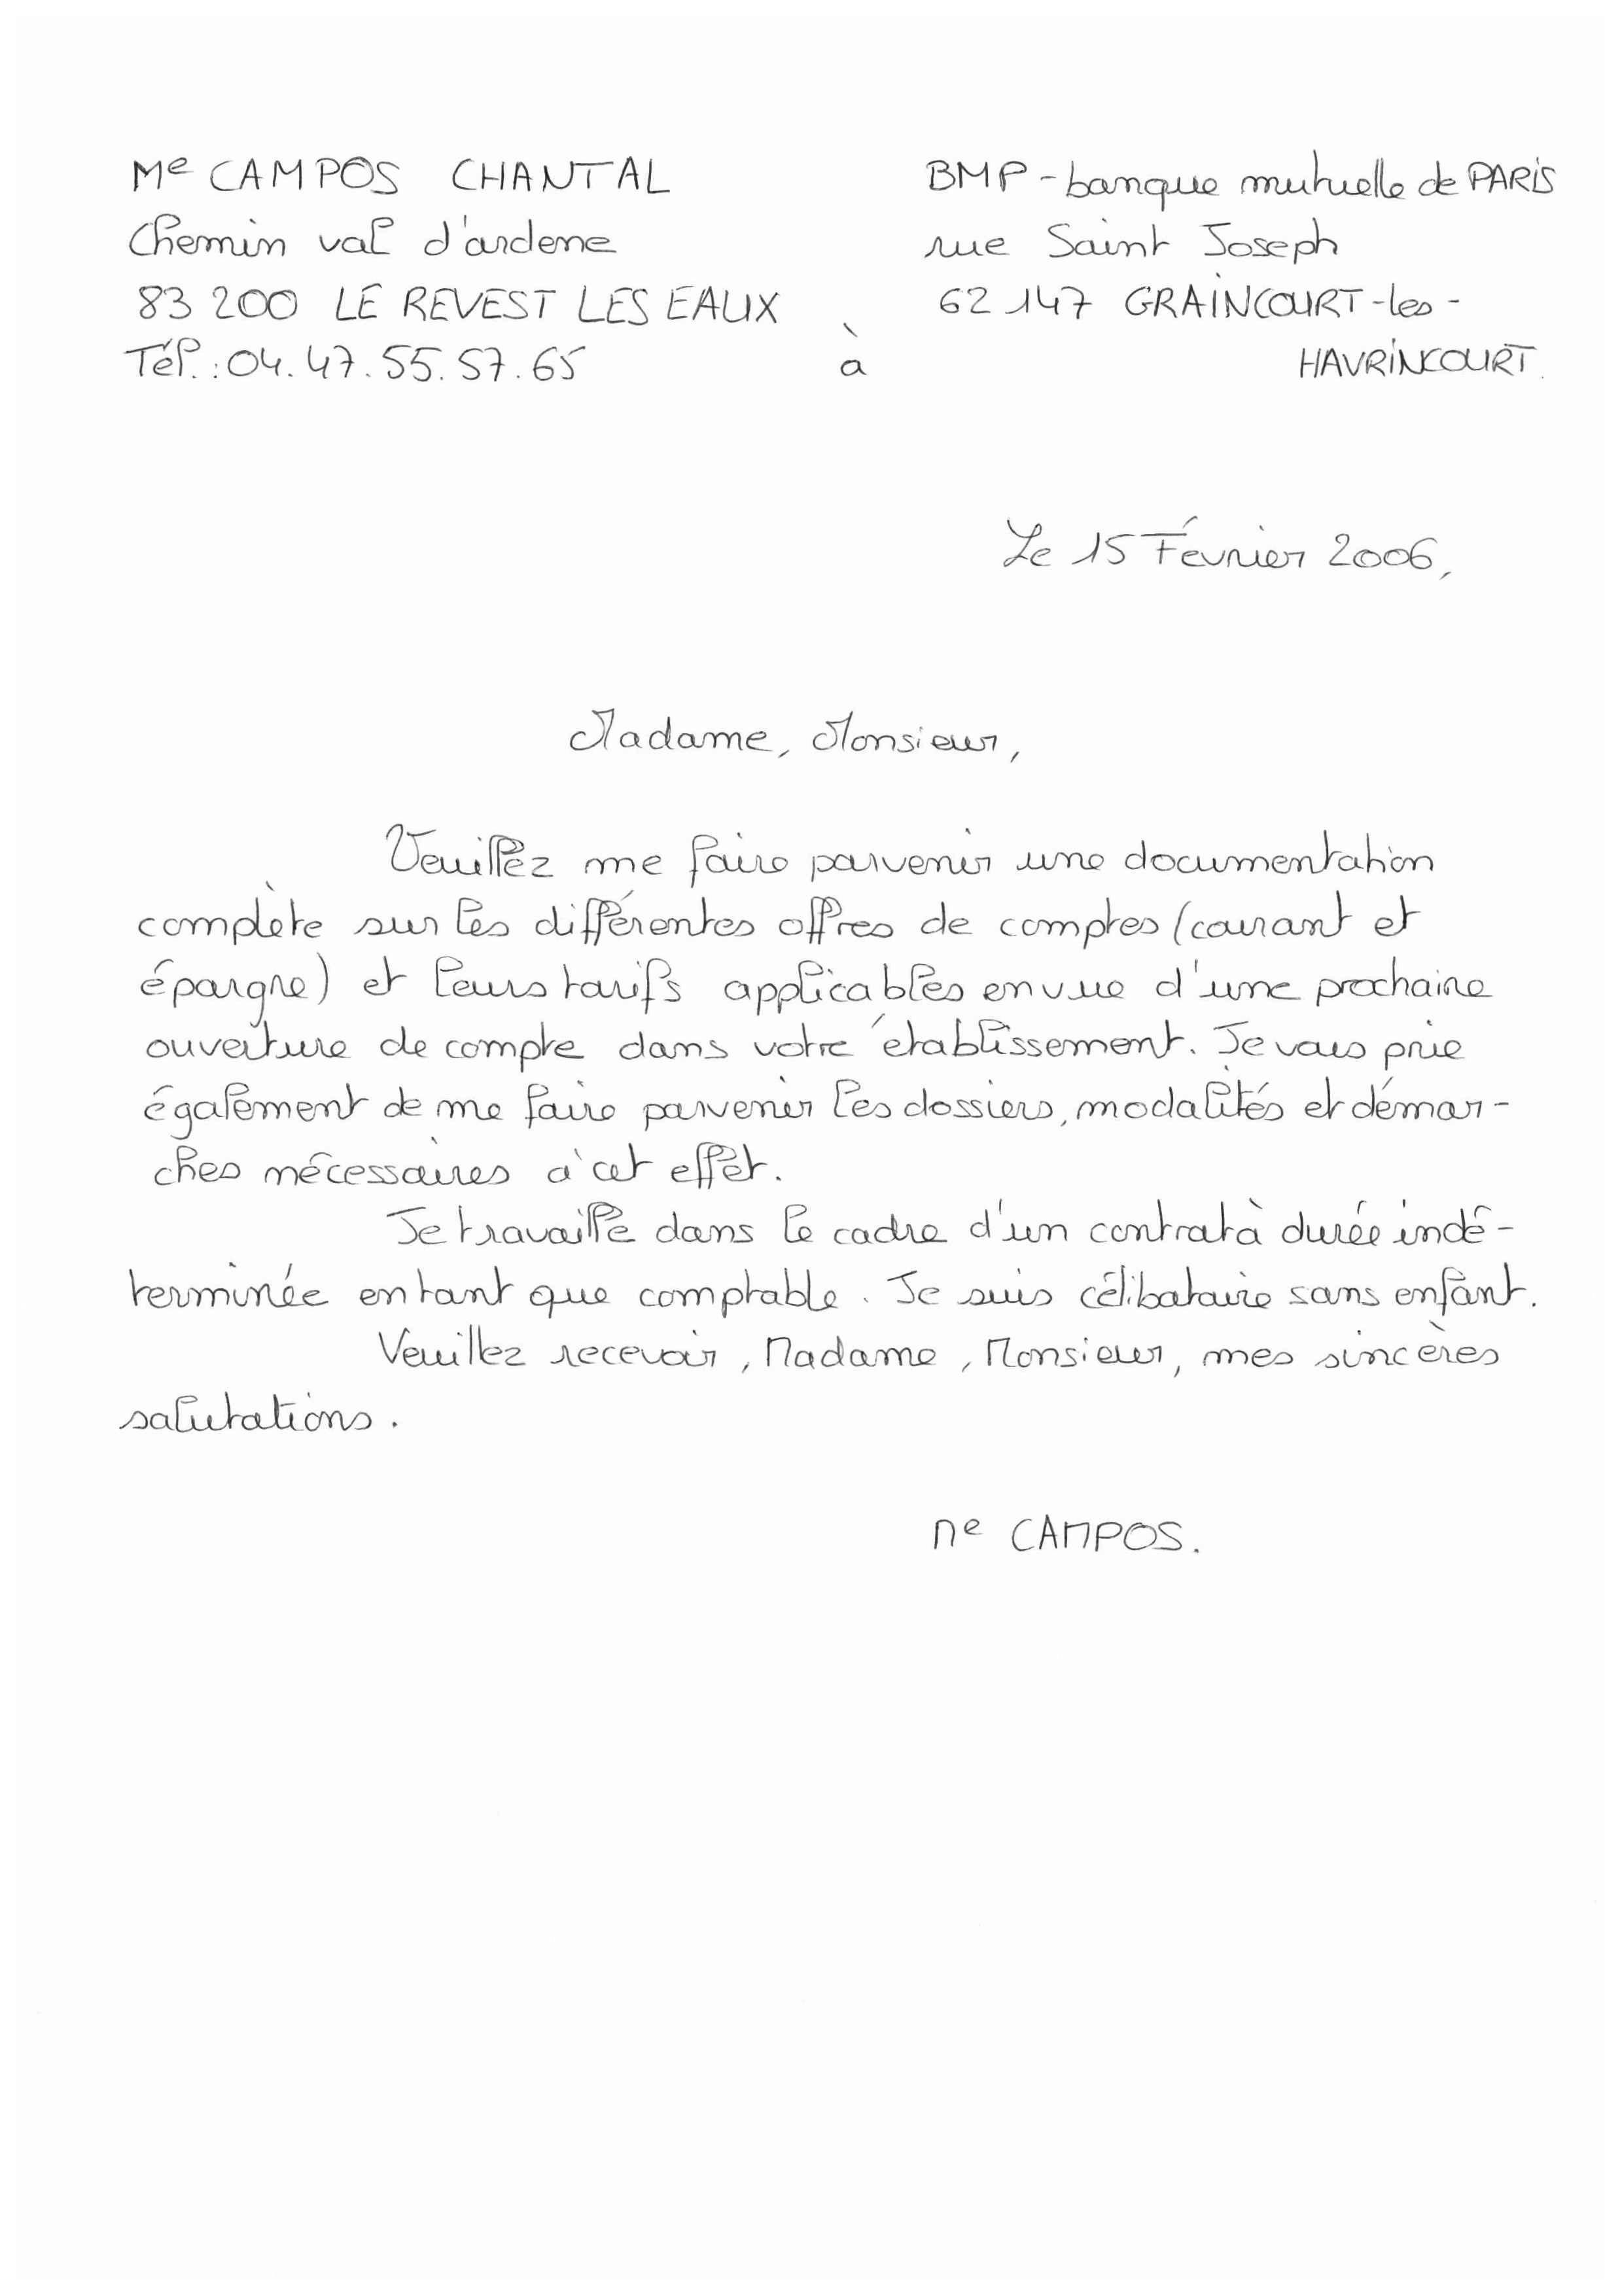 Me CAMPOS CHANTAL
Chemin val d'ardene
83 200 LE REVEST LES EAUX
Tél.: 04.47.55.57.65
à
BMP - banque mutuelle de PARIS
rue Saint Joseph
62 147 GRAINCOURT-les-
HAVRINCOURT.
Le 15 Février 2006,
Madame, Monsieur,
Veuillez me faire parvenir une documentation
complète sur les différentes offres de comptes (courant et
épargne) et leurs tarifs applicables en vue d'une prochaine
ouverture de compte dans votre établissement. Je vous prie
également de me faire parvenir les dossiers, modalités et démar-
ches nécessaires à cet effet.
Je travaille dans le cadre d'un contrat à durée indé-
terminée en tant que comptable. Je suis célibataire sans enfant.
Veuillez recevoir, Madame, Monsieur, mes sincères
salutations.
Me CAMPOS.